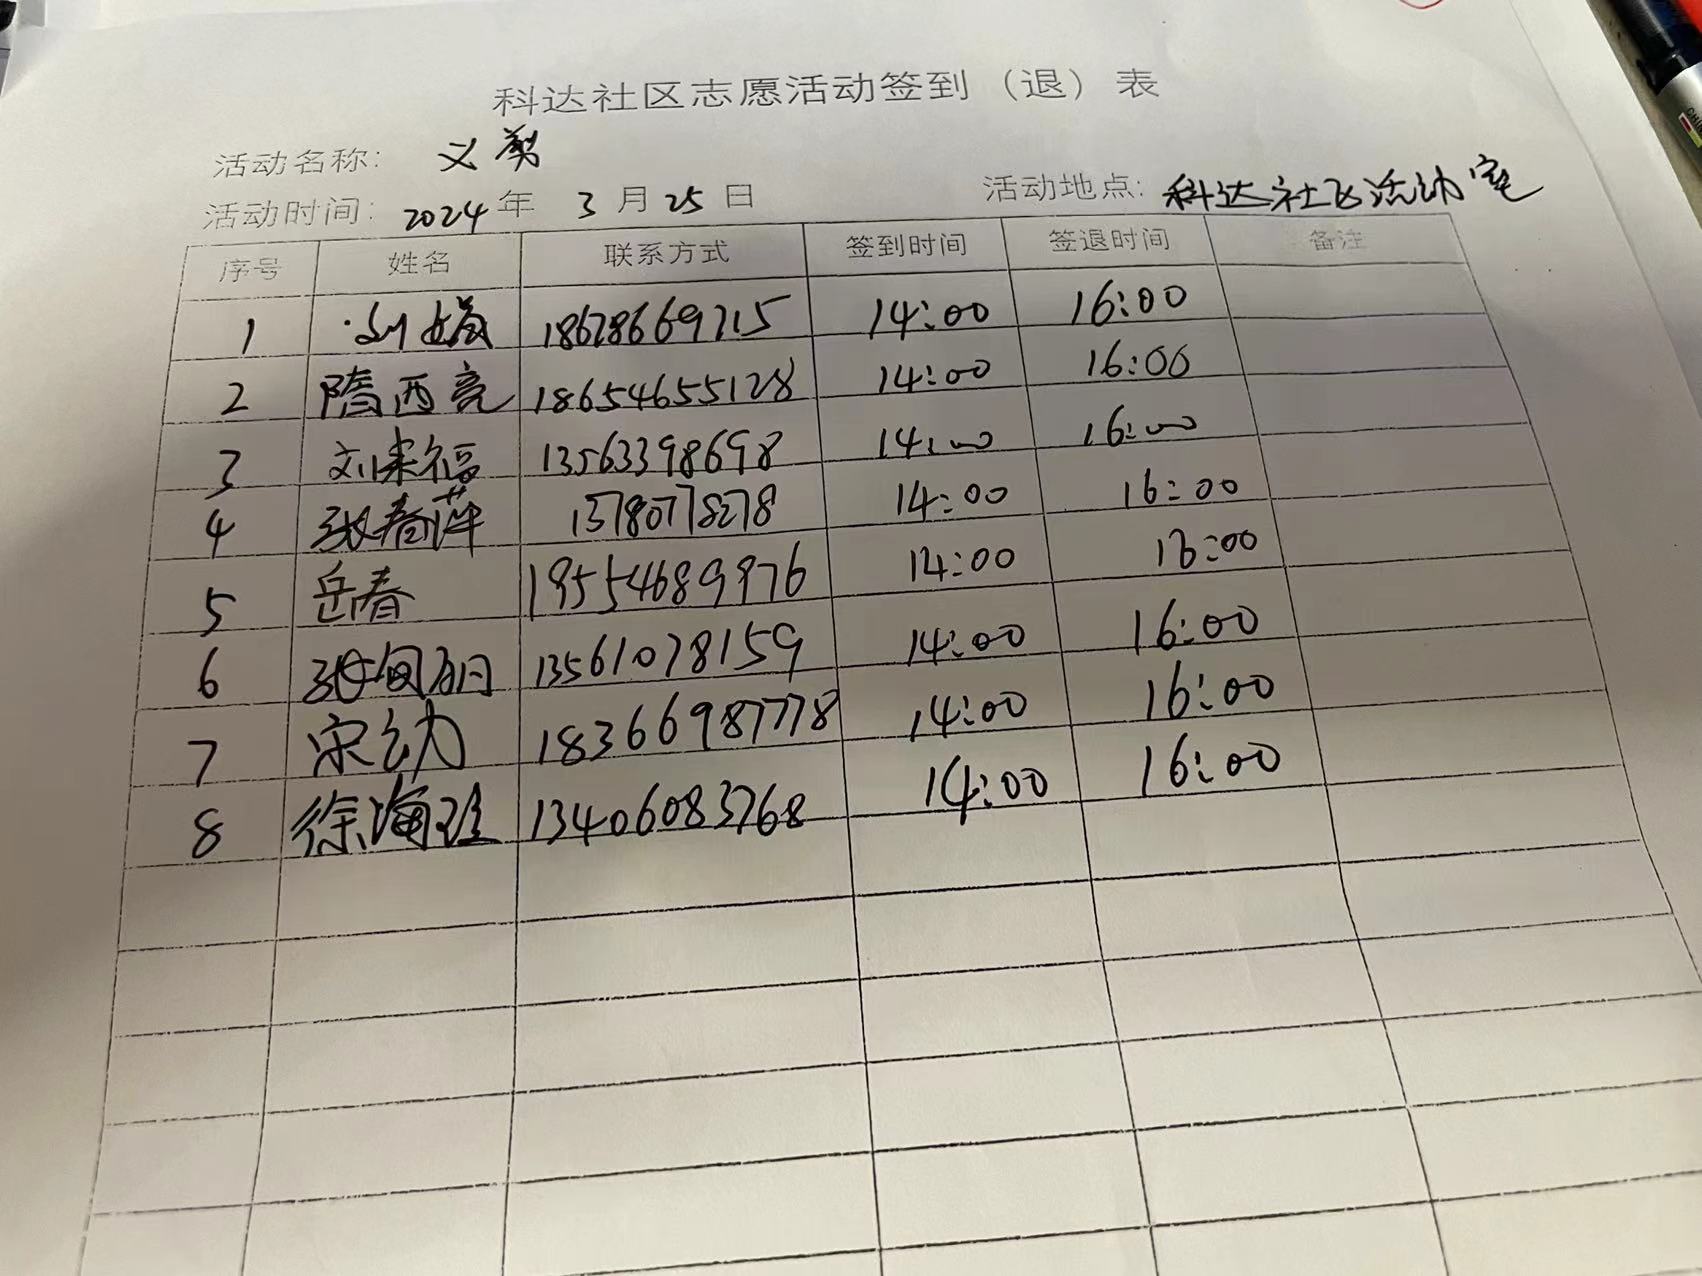 科达社区志愿活动签到（退）表
活动名称： 义剪
活动时间： 2024 年 3 月 25 日 活动地点： 科达社区活动室
序号 姓名 联系方式 签到时间 签退时间 备注
1 刘娟 18678669715 14:00 16:00
2 隋西亮 18654655128 14:00 16:00
3 刘来福 13563398698 14:00 16:00
4 张春萍 13780778278 14:00 16:00
5 岳春 19554689976 14:00 16:00
6 13561078159 14:00 16:00
7 宋 18366987778 14:00 16:00
8 徐海 13406083768 14:00 16:00